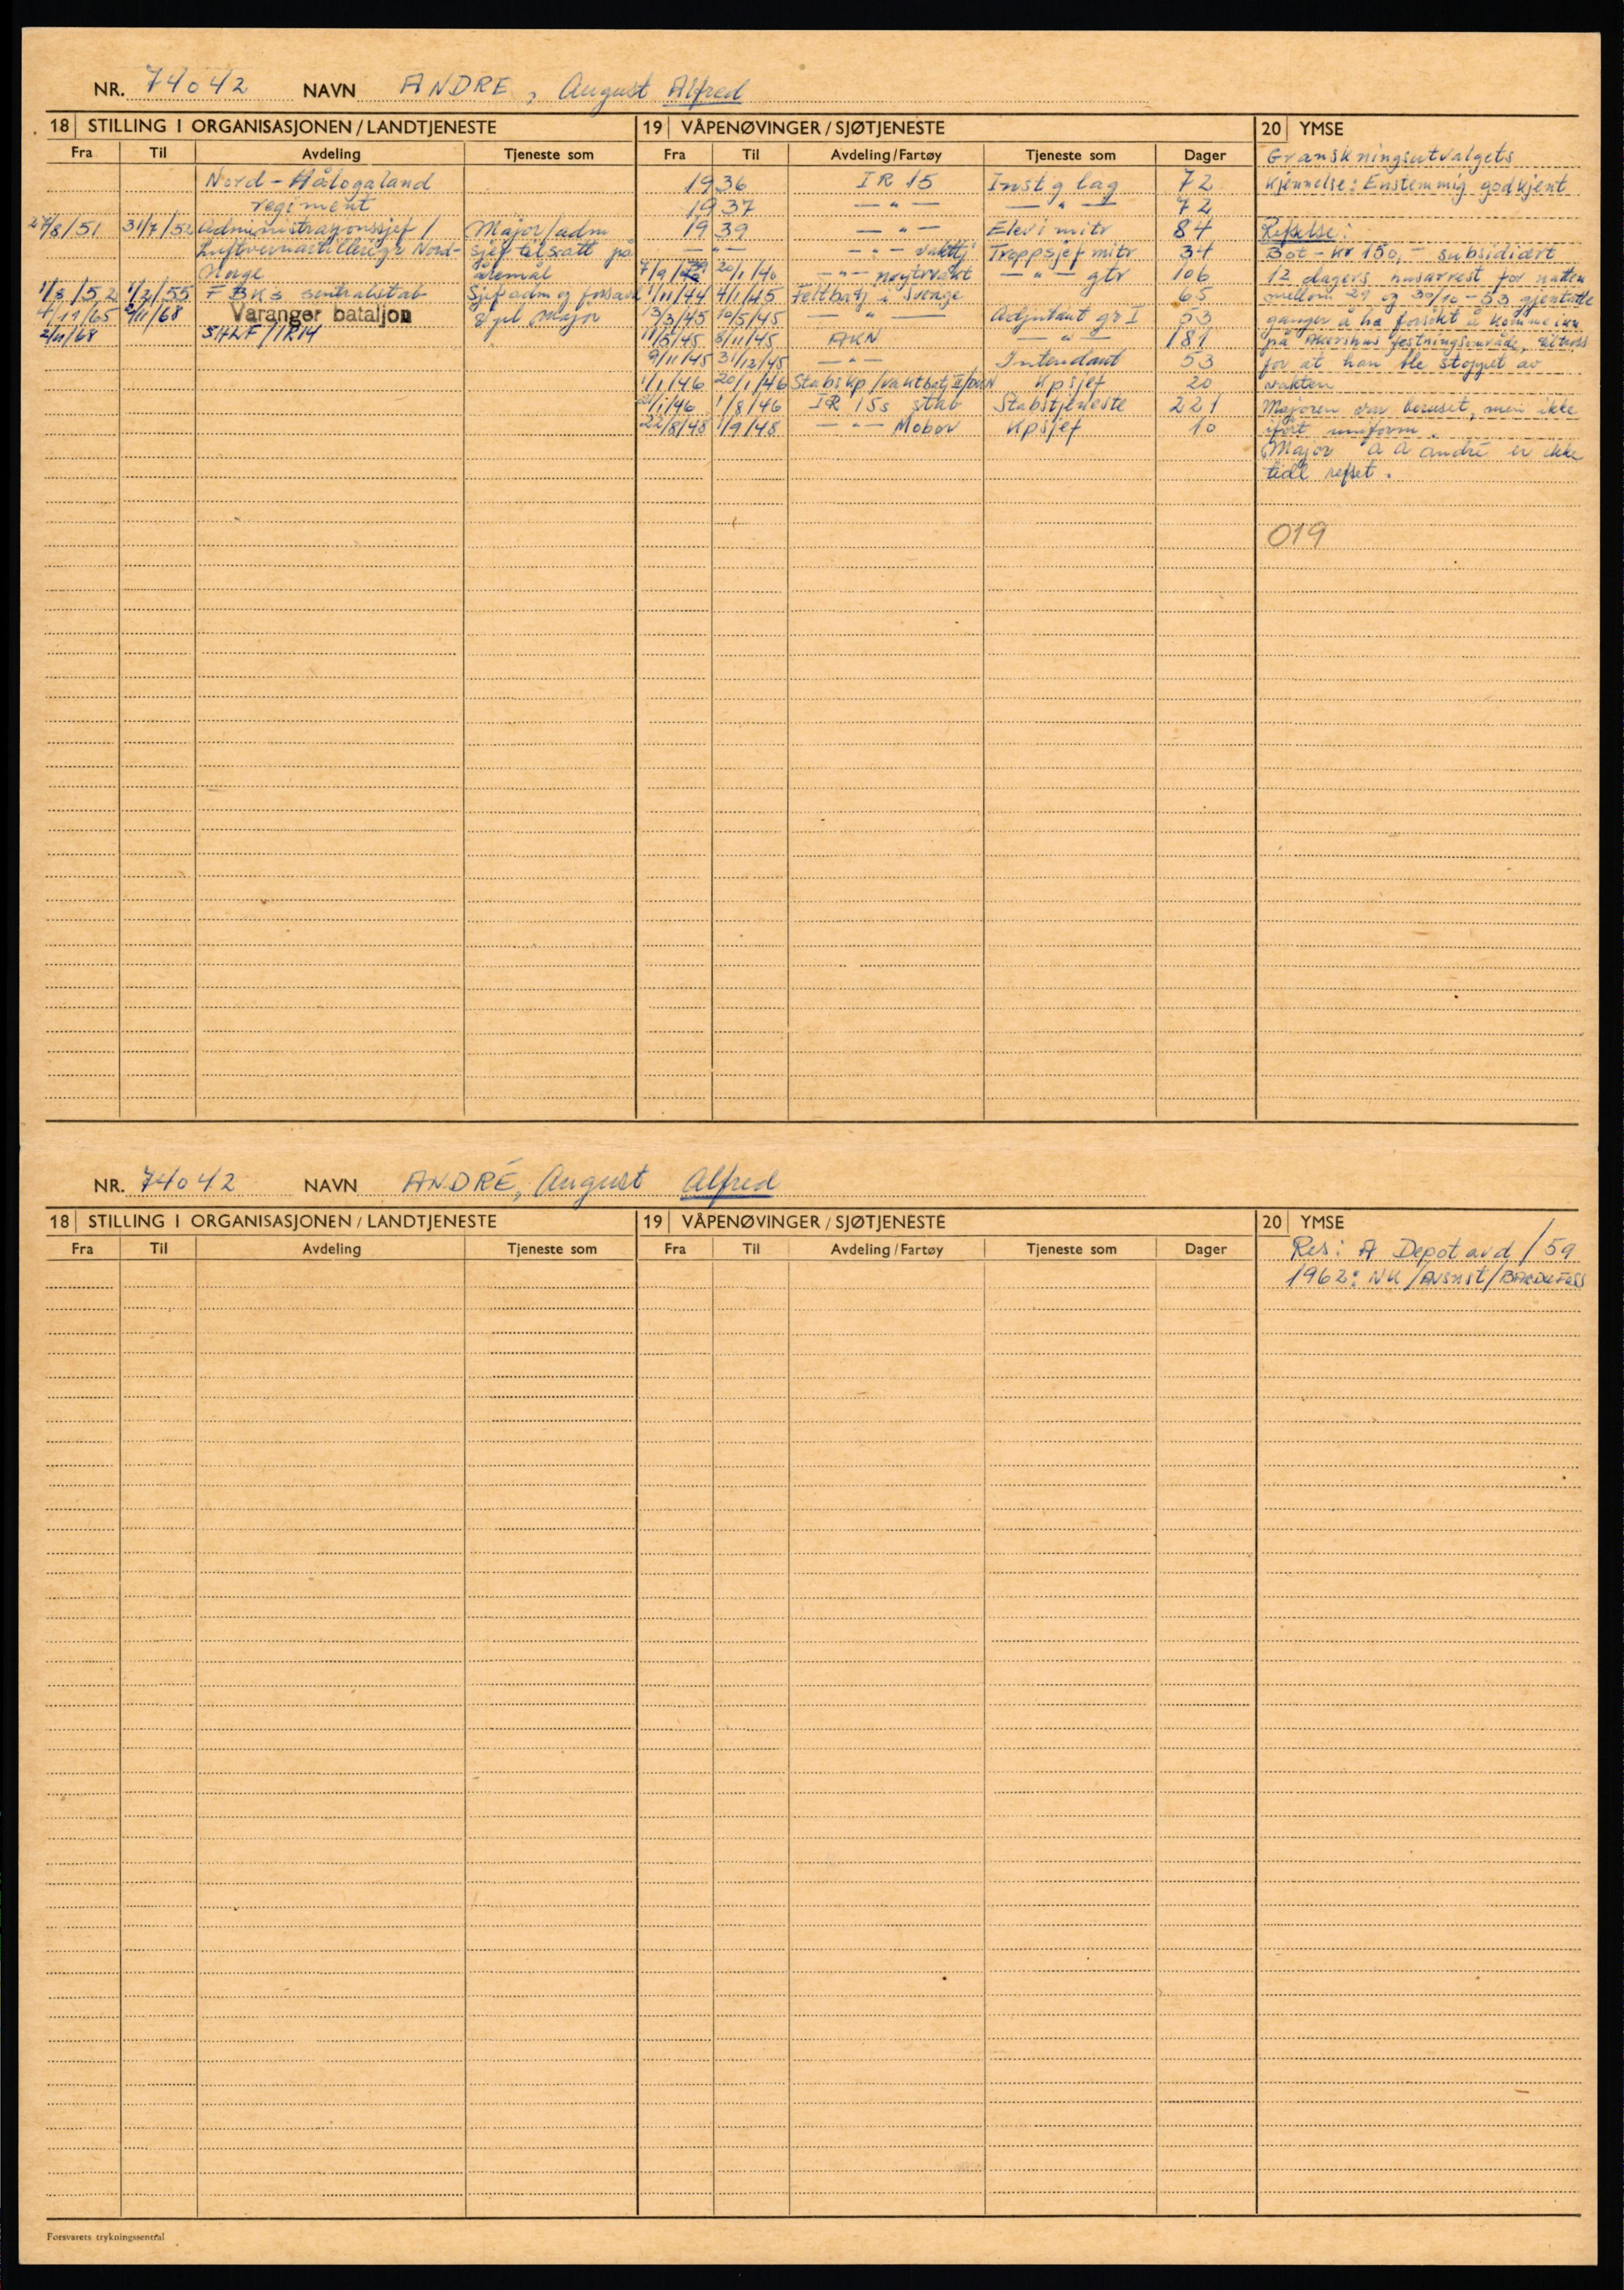 NR. 74042 NAVN ANDRE, August Alfred
18 STILLING I ORGANISASJONEN / LANDTJENESTE
Fra Til Avdeling Tjeneste som
Nord-Hålogaland
regiment
27/8/51 31/7/52 Administrasjonssjef / Major/adm
Luftvernartilleriet Nord- sjef tilsatt på
Norge åremål
1/8/52 1/2/55 FBK's sentralstab Sjef adm og
4/11/65 2/11/68 Varanger bataljon Major
2/11/68
19 VÅPENØVINGER / SJØTJENESTE
Fra Til Avdeling/Fartøy Tjeneste som Dager
1936 IR 15 Inst g lag 72
1937 — " — — " — 72
1939 — " — Elev i mitr 84
— " — — " — vakttj Troppsjef mitr 34
7/9/39 20/1/40 — " — nøytrvakt — " — gtr 106
1/11/44 4/1/45 Feltbatj i Sverige 65
13/3/45 10/5/45 — " — Adjutant gr I 53
11/5/45 8/11/45 AKN — " — 181
9/11/45 31/12/45 — " — Intendant 53
1/1/46 20/1/46 Stabskp/vaktbatj Kpsjef 20
21/1/46 1/8/46 IR 15s stab Stabstjeneste 221
22/8/48 1/9/48 — " — Mobøv Kpsjef 10
20 YMSE
Granskningsutvalgets
kjennelse: Enstemmig godkjent
Refselse:
Bot - kr 150,- subsidiært
12 dagers husarrest for natten
mellom 29 og 30/10-53 gjentatte
ganger å ha forsøkt å komme inn
på Akershus festningsområde, til tross
for at han ble stoppet av
vakten
Majoren var beruset, men ikke
iført uniform.
Major A A André er ikke
tidl refset.
019
NR. 74042 NAVN ANDRÉ, August Alfred
18 STILLING I ORGANISASJONEN / LANDTJENESTE
Fra Til Avdeling Tjeneste som
19 VÅPENØVINGER / SJØTJENESTE
Fra Til Avdeling/Fartøy Tjeneste som Dager
20 YMSE
Res: A Depot avd /59
1962: NK /Avsnst/BARDUFOSS
Forsvarets trykningssentral